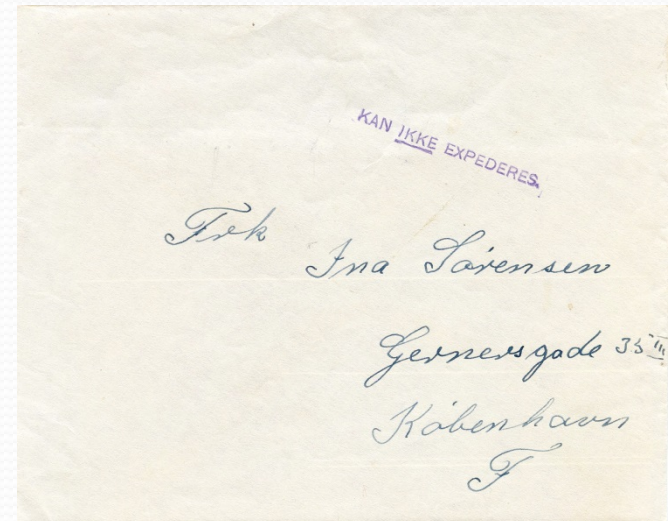 KAN IKKE EXPEDERES.
Frk
Ina Sørensen
Gernersgade 35 III
København
F